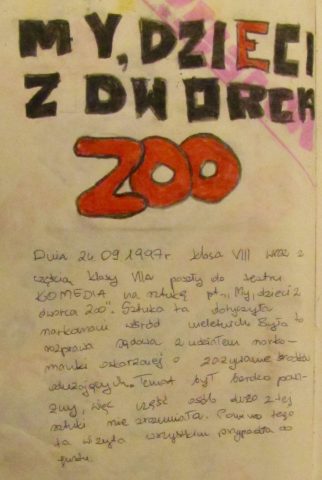 MY, DZIECI
Z DWORCA
ZOO
Dnia 24.09.1997r. klasa VIII wraz z
częścią klasy VIIa poszły do teatru
KOMEDIA na sztukę pt. "My, dzieci z
dworca Zoo". Sztuka ta dotyczyła
narkomanii wśród nieletnich. Była to
rozprawa sądowa z udziałem narko-
manki oskarżonej o zażywanie środka
odużającego. Temat był bardzo powa-
żny, więc część osób dużo z tej
sztuki nie zrozumiała. Pomimo tego
ta wizyta wszystkim przypadła do
gustu.